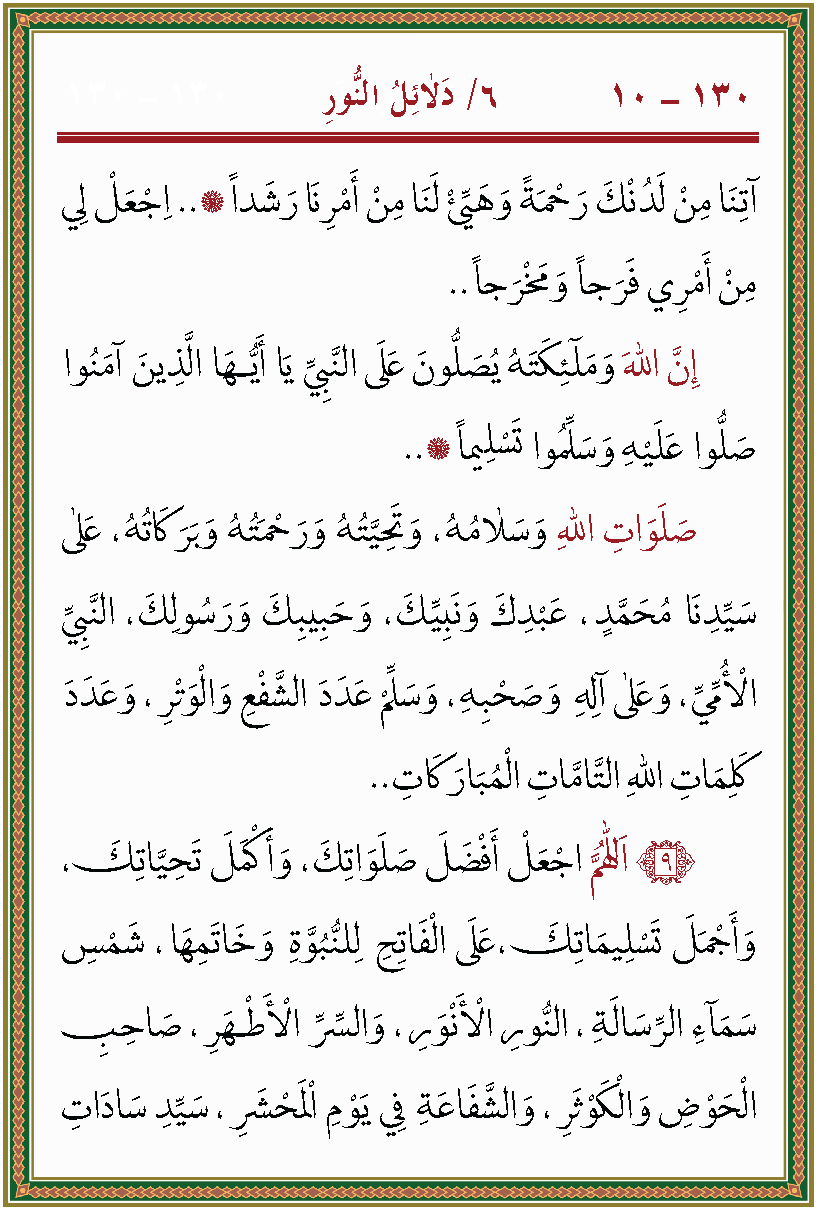 ١٣٠ – ١٠ ٦/ دَلَائِلُ النُّورِ
آتِنَا مِنْ لَدُنْكَ رَحْمَةً وَهَيِّئْ لَنَا مِنْ أَمْرِنَا رَشَداً ۞ .. اِجْعَلْ لِي
مِنْ أَمْرِي فَرَجاً وَمَخْرَجاً ..
إِنَّ اللهَ وَمَلَٓئِكَتَهُ يُصَلُّونَ عَلَى النَّبِيِّ يَا أَيُّهَا الَّذِينَ آمَنُوا
صَلُّوا عَلَيْهِ وَسَلِّمُوا تَسْلِيماً ۞ ..
صَلَوَاتِ اللهِ وَسَلَامُهُ، وَتَحِيَّتُهُ وَرَحْمَتُهُ وَبَرَكَاتُهُ، عَلٰى
سَيِّدِنَا مُحَمَّدٍ ، عَبْدِكَ وَنَبِيِّكَ، وَحَبِيبِكَ وَرَسُولِكَ، النَّبِيِّ
الْأُمِّيِّ، وَعَلٰى آلِهِ وَصَحْبِهِ، وَسَلِّمْ عَدَدَ الشَّفْعِ وَالْوَتْرِ ، وَعَدَدَ
كَلِمَاتِ اللهِ التَّامَّاتِ الْمُبَارَكَاتِ..
٩ اَللّٰهُمَّ اجْعَلْ أَفْضَلَ صَلَوَاتِكَ، وَأَكْمَلَ تَحِيَّاتِكَ،
وَأَجْمَلَ تَسْلِيمَاتِكَ،عَلَى الْفَاتِحِ لِلنُّبُوَّةِ وَخَاتَمِهَا ، شَمْسِ
سَمَآءِ الرِّسَالَةِ ، النُّورِ الْأَنْوَرِ ، وَالسِّرِّ الْأَطْهَرِ ، صَاحِبِ
الْحَوْضِ وَالْكَوْثَرِ ، وَالشَّفَاعَةِ فِي يَوْمِ الْمَحْشَرِ ، سَيِّدِ سَادَاتِ